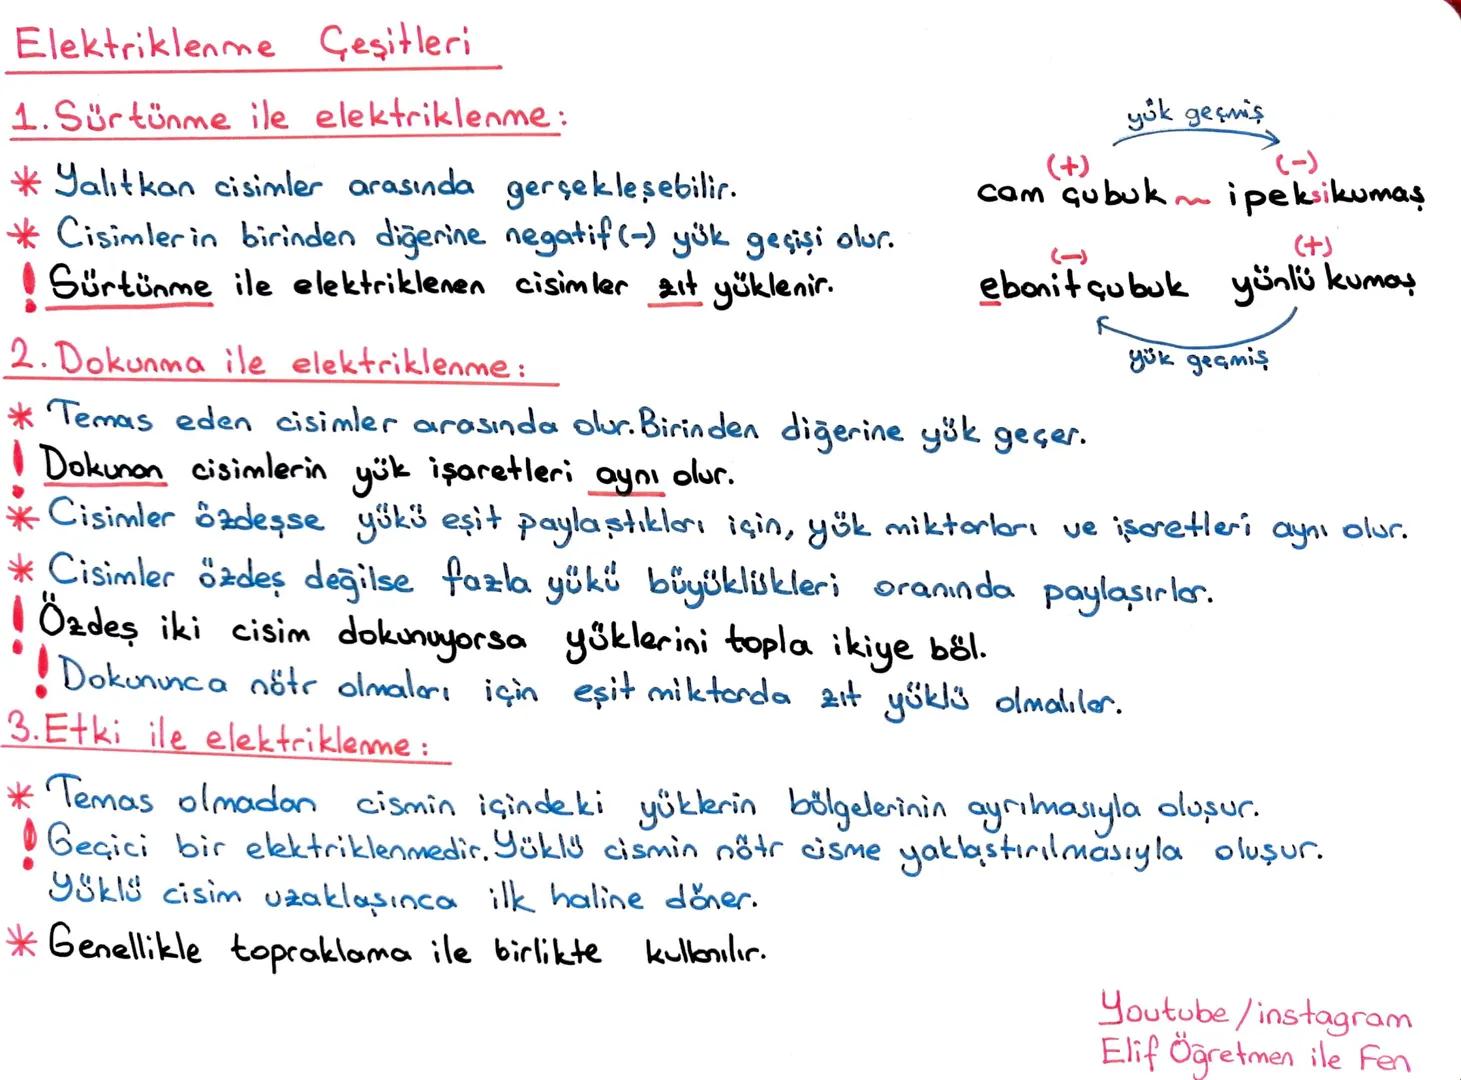 Elektriklenme Çeşitleri
1. Sürtünme ile elektriklenme:
* Yalıtkan cisimler arasında gerçekleşebilir.
* Cisimlerin birinden diğerine negatif (-) yük geçişi olur.
! Sürtünme ile elektriklenen cisimler zıt yüklenir.
yük geçmiş
(+) (-)
cam çubuk ~ ipeksikumaş
(-) (+)
ebonit çubuk yünlü kumaş
yük geçmiş
2. Dokunma ile elektriklenme:
* Temas eden cisimler arasında olur. Birinden diğerine yük geçer.
! Dokunan cisimlerin yük işaretleri aynı olur.
* Cisimler özdeşse yükü eşit paylaştıkları için, yük miktarları ve işaretleri aynı olur.
* Cisimler özdeş değilse fazla yükü büyüklükleri oranında paylaşırlar.
! Özdeş iki cisim dokunuyorsa yüklerini topla ikiye böl.
! Dokununca nötr olmaları için eşit miktarda zıt yüklü olmalılar.
3. Etki ile elektriklenme:
* Temas olmadan cismin içindeki yüklerin bölgelerinin ayrılmasıyla oluşur.
! Geçici bir elektriklenmedir. Yüklü cismin nötr cisme yaklaştırılmasıyla oluşur.
Yüklü cisim uzaklaşınca ilk haline döner.
* Genellikle topraklama ile birlikte kullanılır.
Youtube/instagram
Elif Öğretmen ile Fen